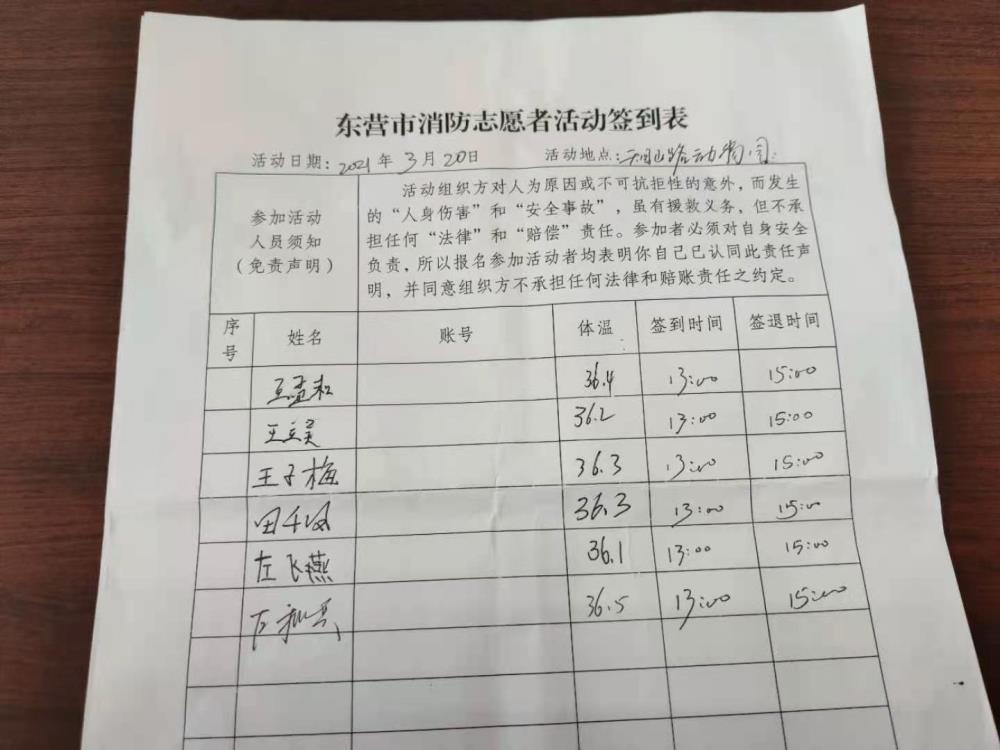 东营市消防志愿者活动签到表
活动日期：2021年3月20日 活动地点：路动物园
参加活动
人员须知
（免责声明）
活动组织方对人为原因或不可抗拒性的意外，而发生
的“人身伤害”和“安全事故”，虽有援救义务，但不承
担任何“法律”和“赔偿”责任。参加者必须对自身安全
负责，所以报名参加活动者均表明你自己已认同此责任声
明，并同意组织方不承担任何法律和赔账责任之约定。
序号 姓名 账号 体温 签到时间 签退时间
36.4 13:00 15:00
36.2 13:00 15:00
王子梅 36.3 13:00 15:00
36.3 13:00 15:00
左飞燕 36.1 13:00 15:00
36.5 13:00 15:00